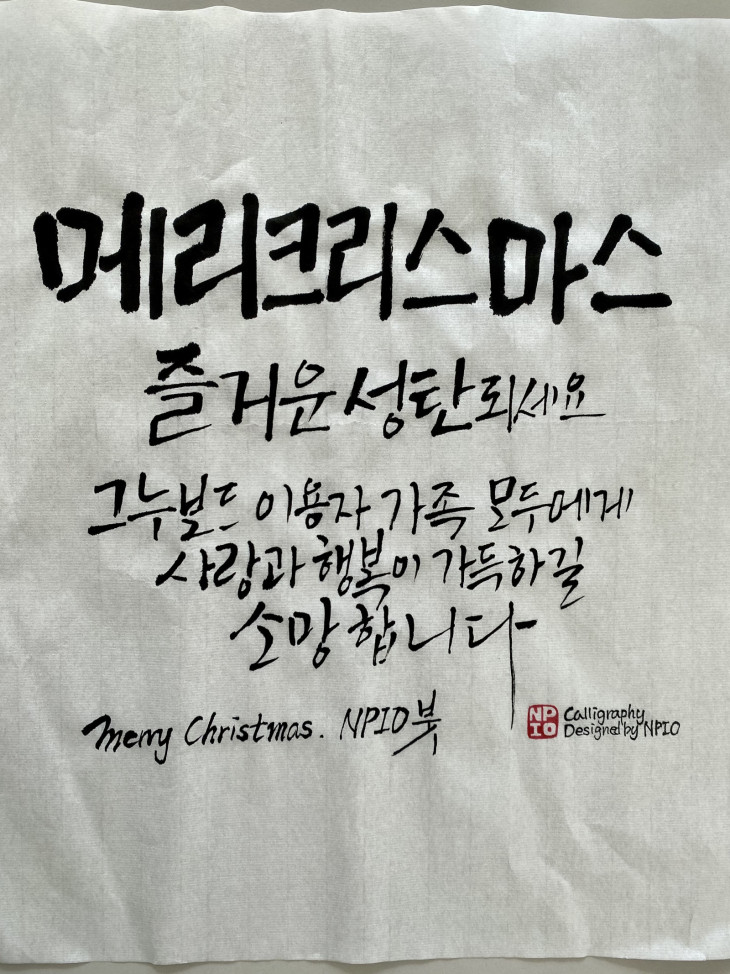 메리크리스마스
즐거운 성탄되세요
그누보드 이용자 가족 모두에게
사랑과 행복이 가득하길
소망합니다
Merry Christmas. NPIO 붓
NP
IO
Calligraphy
Designed by NPIO